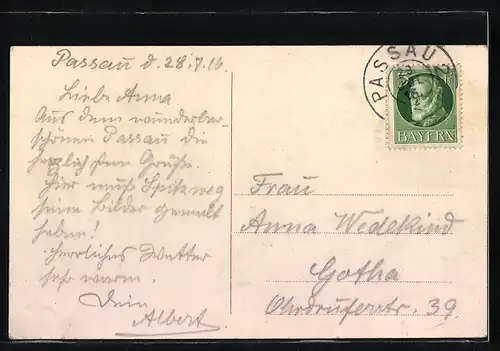 Passau d. 28.7.16.
Liebe Anna.
Aus dem wunderbar-
schönen Passau die
herzlichsten Grüße.
Hier muß Spitzweg
seine Bilder gemalt
haben!
Herrliches Wetter
sehr warm.
Dein
Albert
PASSAU 2
BAYERN
Frau
Anna Wedekind
Gotha
Ohrdruferstr. 39